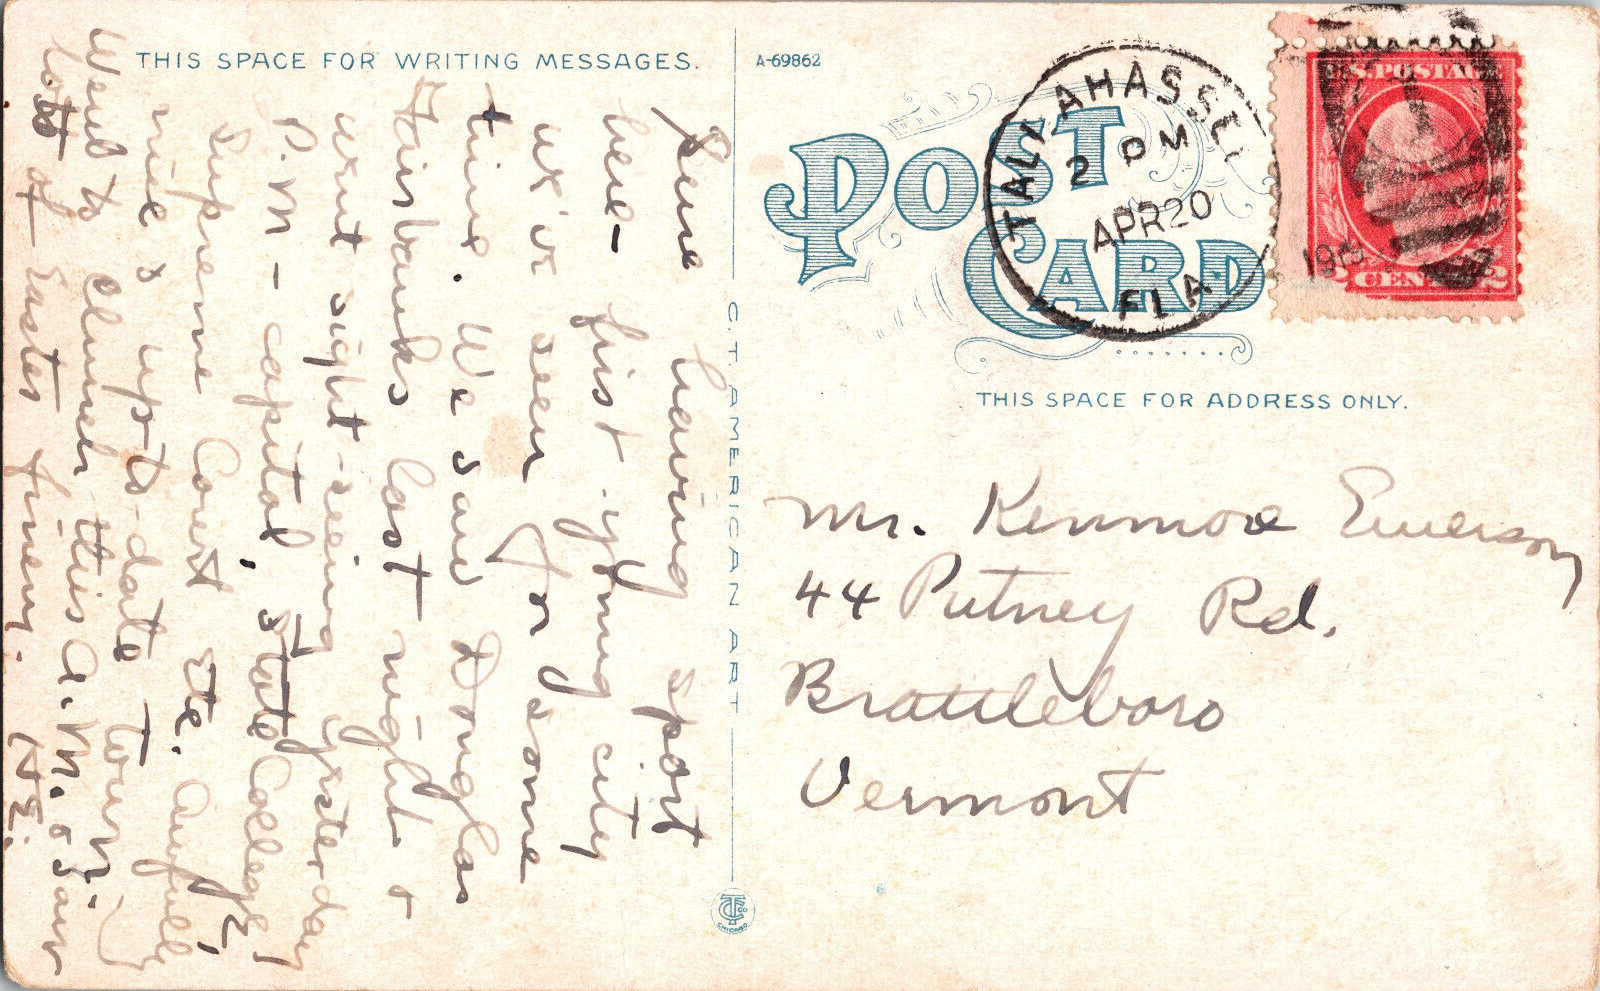 THIS SPACE FOR WRITING MESSAGES.
A-69862
POST
CARD
TALLAHASSEE
2 PM
APR 20
191
FLA.
U.S. POSTAGE
2 CENTS 2
THIS SPACE FOR ADDRESS ONLY.
Mr. Kenmore Emerson
44 Putney Rd.
Brattleboro
Vermont
C. T. AMERICAN ART
CHICAGO
having sport
here - first young city
we've seen for some
time. We saw Douglas
Fairbanks last night &
went sight-seeing yesterday
P.M - capital, state College,
Supreme Court etc. Awfully
nice & up-to-date town.
Went to Church this A.M. & saw
lots of Easter finery. H.E.